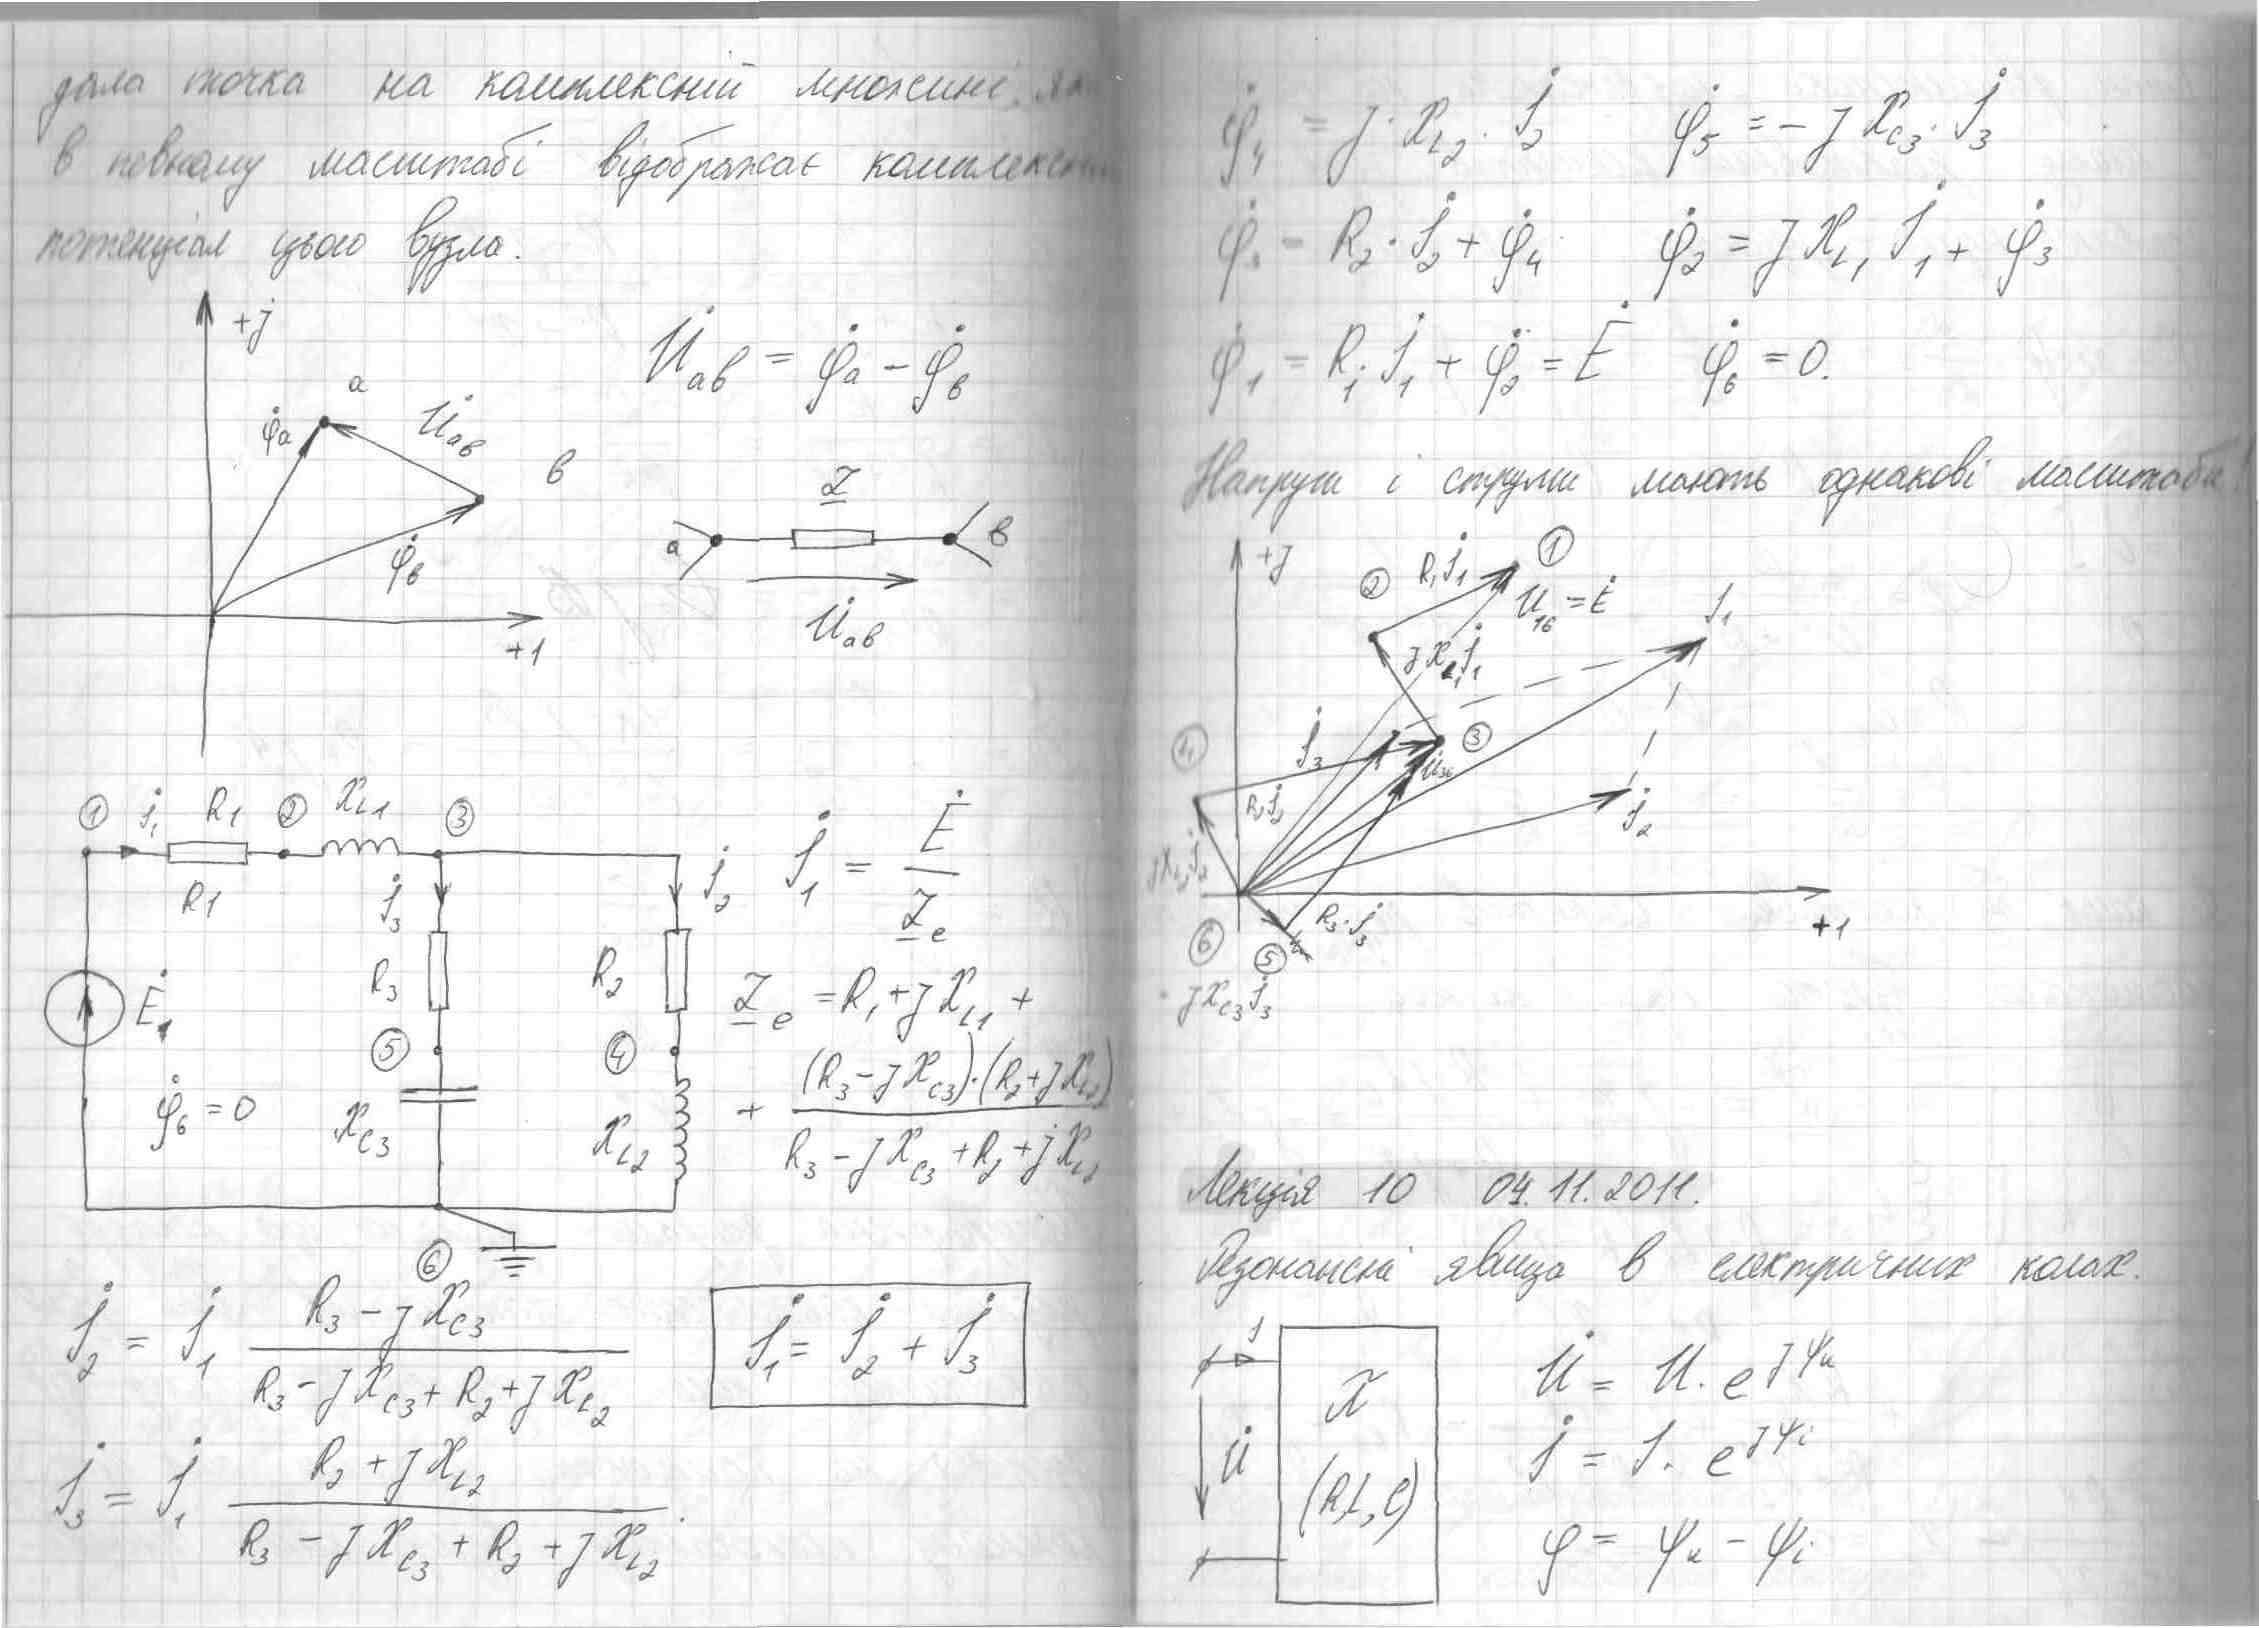 дала точка на комплексній множині, яка
в певному масштабі відображає комплексний
потенціал цього вузла.
+j
a
φ̇a
U̇ab
в
φ̇в
+1
U̇ав = φ̇a − φ̇в
Z
a
в
U̇ав
① İ1 R1 ② XL1 ③
R1
İ3
İ2
R3
R2
Ė1
⑤
④
φ̇6 = 0
XC3
XL2
⑥
İ1 = Ė / Ze
Ze = R1 + jXL1 +
+ (R3 − jXC3)·(R2 + jXL2) / R3 − jXC3 + R2 + jXL2
İ2 = İ1 R3 − jXC3 / R3 − jXC3 + R2 + jXL2
İ1 = İ2 + İ3
İ3 = İ1 R2 + jXL2 / R3 − jXC3 + R2 + jXL2.
φ̇4 = j·XL2·İ2 φ̇5 = −jXC3·İ3
φ̇3 = R2·İ2 + φ̇4 φ̇2 = jXL1 İ1 + φ̇3
φ̇1 = R1·İ1 + φ̇2 = Ė φ̇6 = 0.
Напруги і струми мають однакові масштаби!
+j
①
R1İ1
②
U̇16 = Ė
İ1
jXL1İ1
③
④
İ3
U̇36
R2İ2
İ2
jXL2İ2
R3·İ3
+1
⑥
⑤
jXC3İ3
Лекція 10 04.11.2011.
Резонансні явища в електричних колах.
İ
U̇
X
(R,L,C)
U̇ = U·e^jψu
İ = I·e^jψi
φ = ψu − ψi